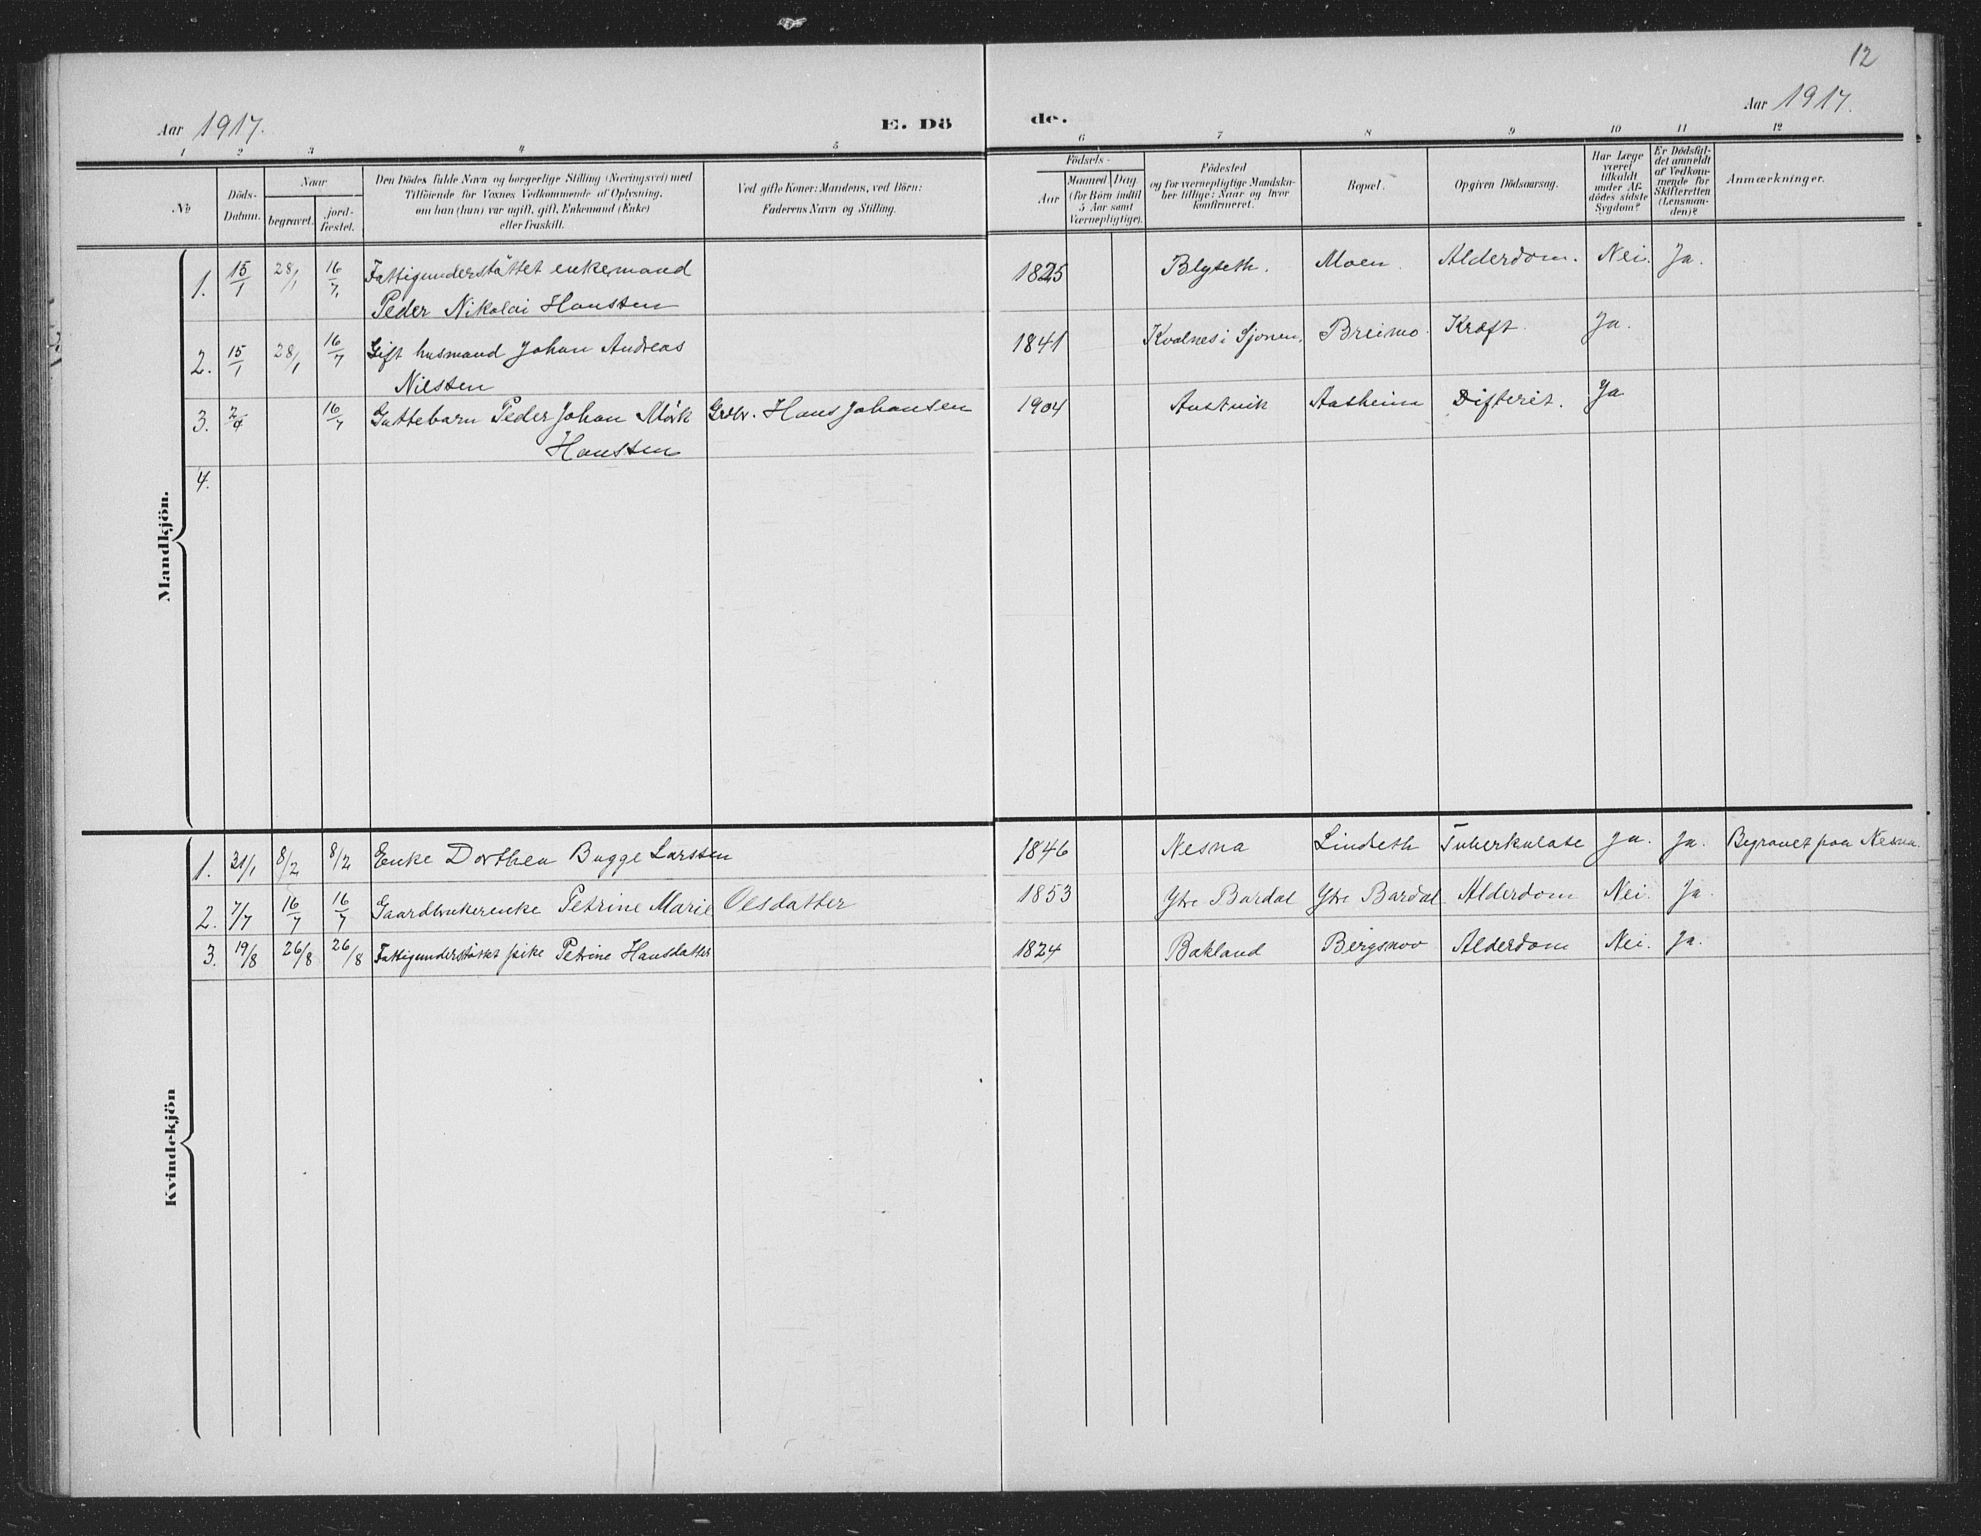 12
Aar 1917.
E. Dö
de.
Aar 1917.
1 2 3 4 5 6 7 8 9 10 11 12
No
Döds-
Datum.
Naar
begravet.
jord-
fæstet.
Den Dödes fulde Navn og borgerlige Stilling (Næringsvei) med
Tilföiende for Voxnes Vedkommende af Oplysning,
om han (hun) var ugift, gift, Enkemand (Enke)
eller fraskilt.
Ved gifte Koner: Mandens, ved Börn:
Faderens Navn og Stilling.
Födsels-
Aar
Maaned Dag
(for Börn indtil
5 Aar samt
Værnepligtige).
Födested
og for værnepligtige Mandska-
ber tillige: Naar og hvor
konfirmeret.
Bopæl.
Opgiven Dödsaarsag.
Har Læge
været
tilkaldt
under Af-
dödes sidste
Sygdom?
Er Dödsfal-
det anmeldt
af Vedkom-
mende for
Skifteretten
(Lensman-
den)?
Anmærkninger.
Mandkjön.
1. 15/1 28/1 16/7 Fattigunderstöttet enkemand
Peder Nikolai Hanssen
1825 Blyseth. Moen. Alderdom. Nei. Ja.
2. 15/1 28/1 16/7 Gift husmand Johan Andreas
Nilssen
1841 Kvalnes i Sjonen. Breimo. Kræft. Ja.
3. 2/4 16/7 Guttebarn Peder Johan Mörk Grdbr. Hans Johansen
Hanssen
1904 Austvik Aasheim Difterit. Ja
4.
Kvindekjön
1. 31/1 8/2 8/2 Enke Dorthea Bugge Larssen 1846 Nesna Lindseth Tuberkulose Ja. Ja. Begravet paa Nesna.
2. 7/7 16/7 16/7 Gaardbrukerenke Petrine Marie Olsdatter 1853 Ytre Bardal Ytre Bardal Alderdom Nei. Ja.
3. 19/8 26/8 26/8 Fattigunderstöttet pike Petrine Hansdatter 1824 Bakland Bergsnov Alderdom Nei. Ja.